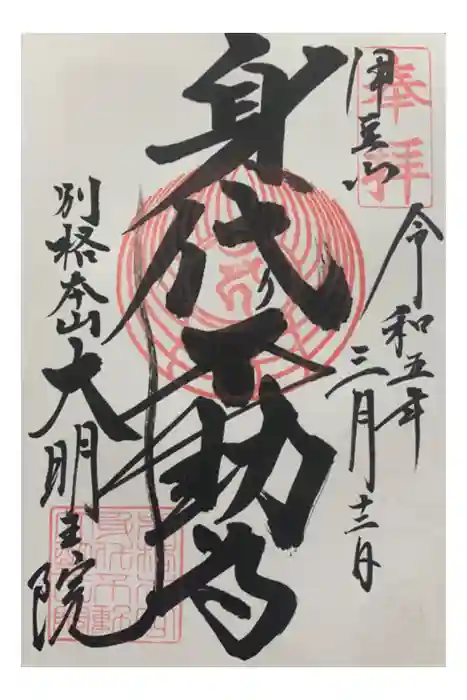 奉拝
伊豆山
令和五年
三月十二日
身代り不動尊
別格本山大明王院